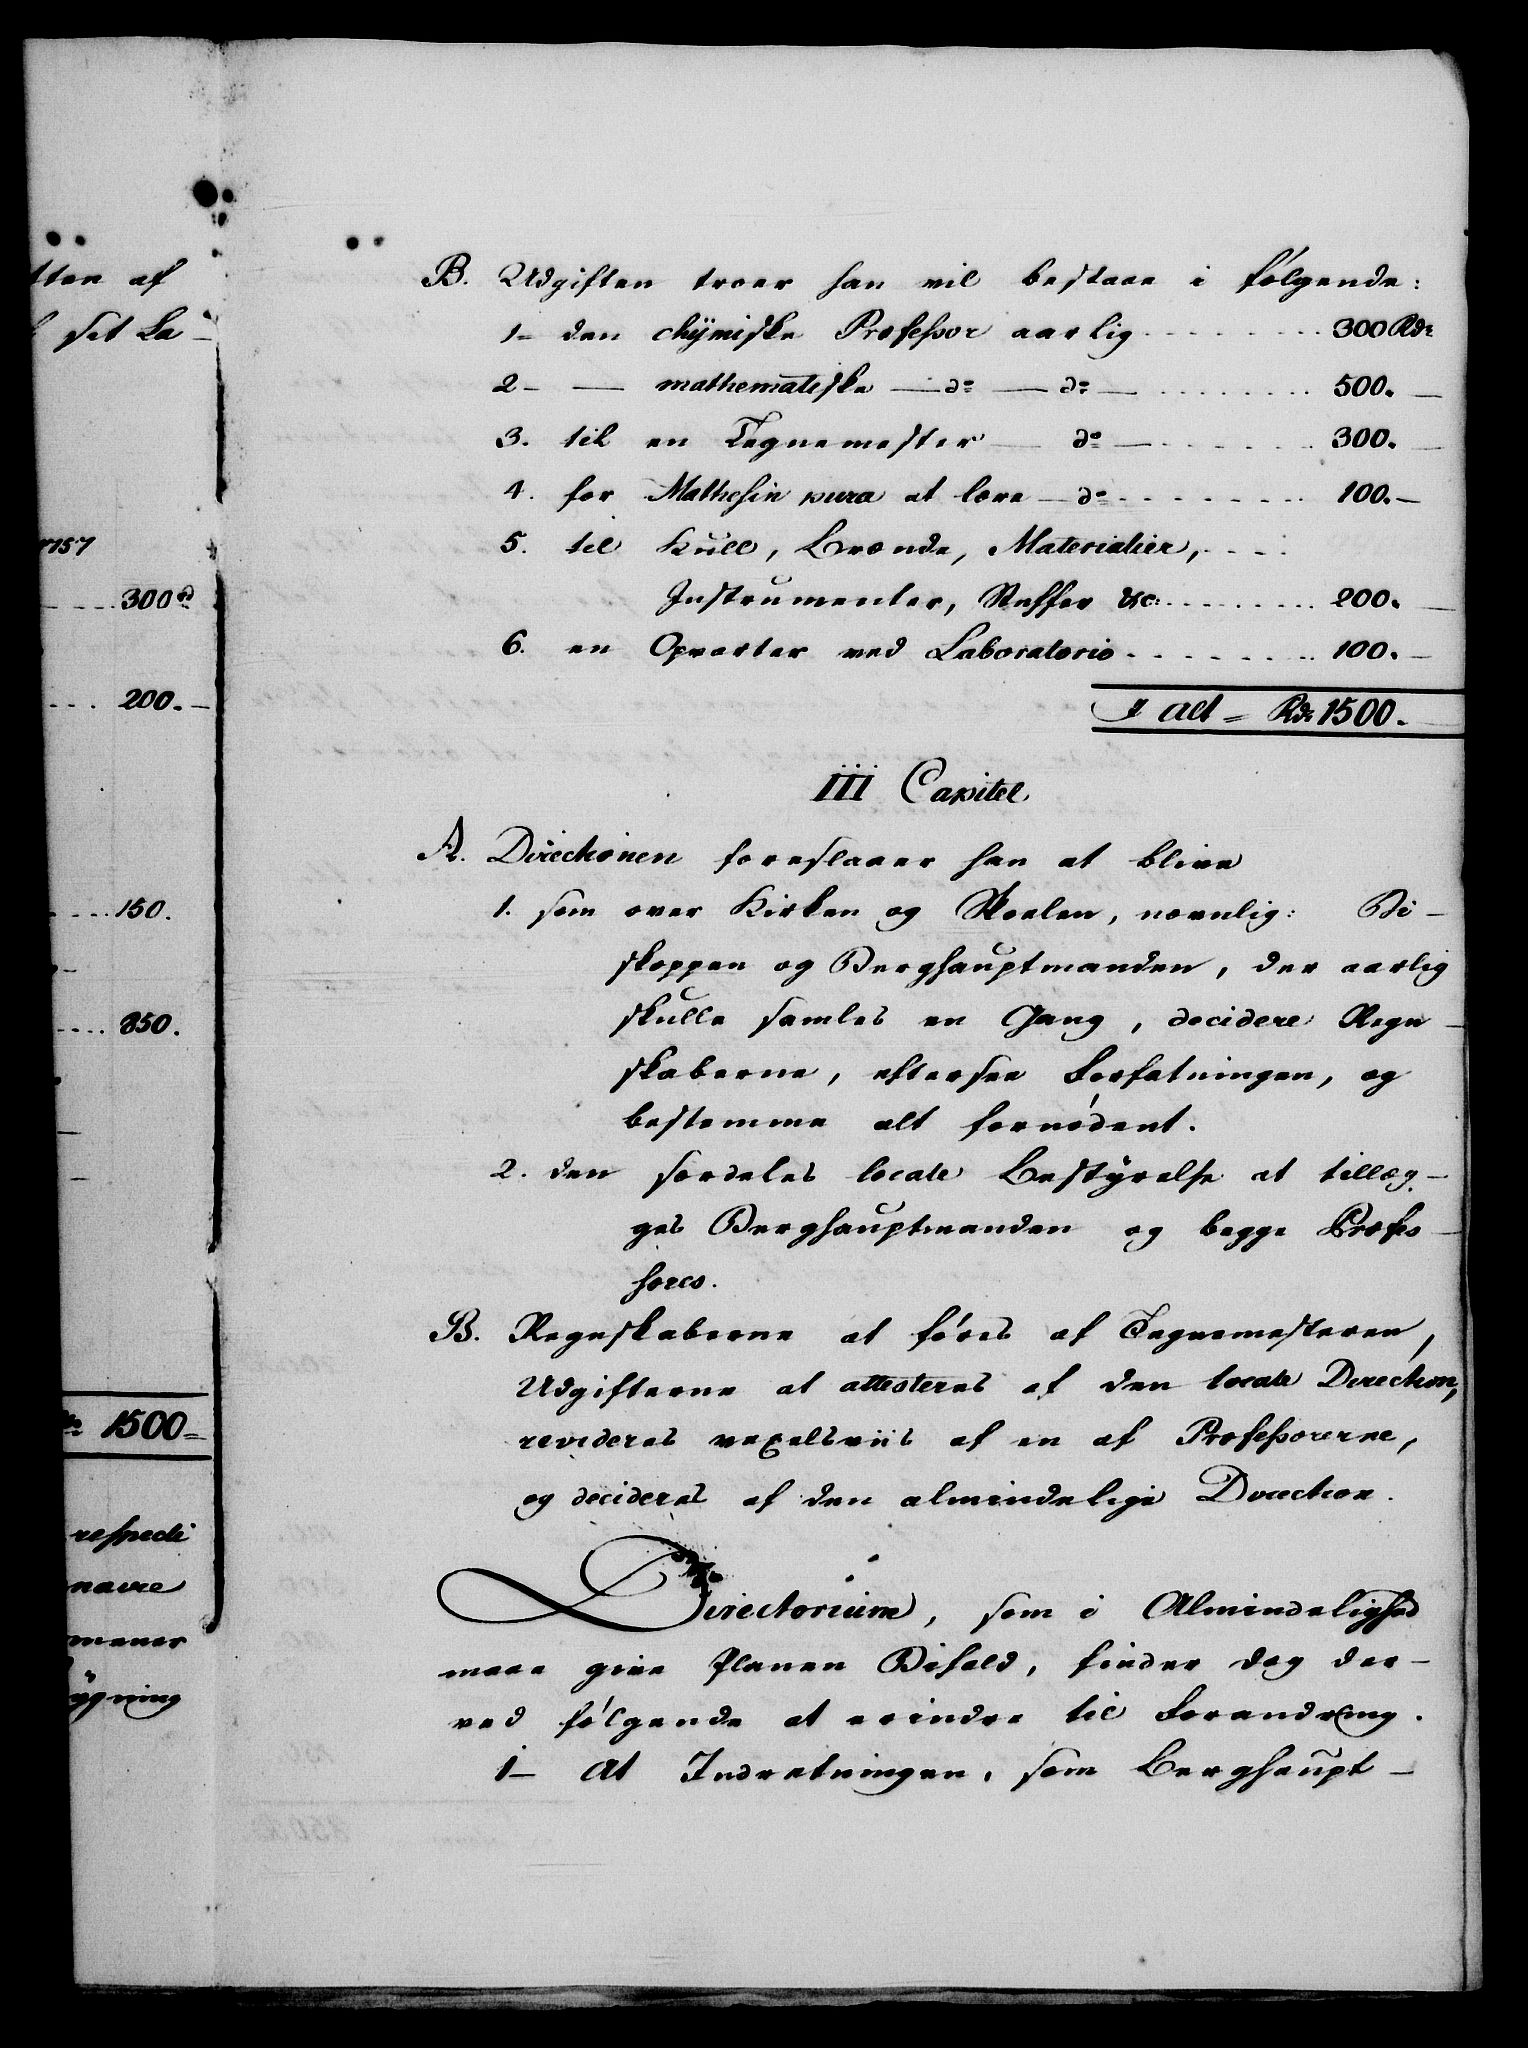 tten af
set La-
1757
300 rd
200.-
150.
350.
1500=
respecti
navre
mener
ygning
B. Udgiften troer han vil bestaae i følgende:
1- den chÿmiske Professor aarlig ........ 300 Rdr
2- — mathematiske — do — do — ........ 500.—
3. til en Tegnemester — do — ....... 300.—
4. for Mathesin pura at lære — do ........ 100.—
5. til Kull, Brænde, Materialier, ....
Instrumenter, Stuffer &c: ........ 200.—
6. en Opvarter ved Laboratorio ........ 100.—
I alt = Rdr 1500.
III Capitel
A. Directionen foreslaaer han at blive
1. som over Kirken og Skolen, nævnlig: Bi-
skoppen og Berghauptmanden, der aarlig
skulle samles en Gang, decidere Regn-
skaberne, eftersee Forfatningen, og
bestemme alt fornødent.
2. den særdeles locale Bestÿrelse at tillæg-
ges Berghauptmanden og begge Profes-
sores.
B. Regnskaberne at føres af Tegnemesteren,
Udgifterne at attesteres af den locale Direction,
revideres vexelsviis af en af Professorerne,
og decideres af den almindelige Direction.
Directorium, som i Almindelighed
maae give Planen Bifald, finder dog der-
ved følgende at erindre til Forandring.
1- At Indretningen, som Berghaupt-